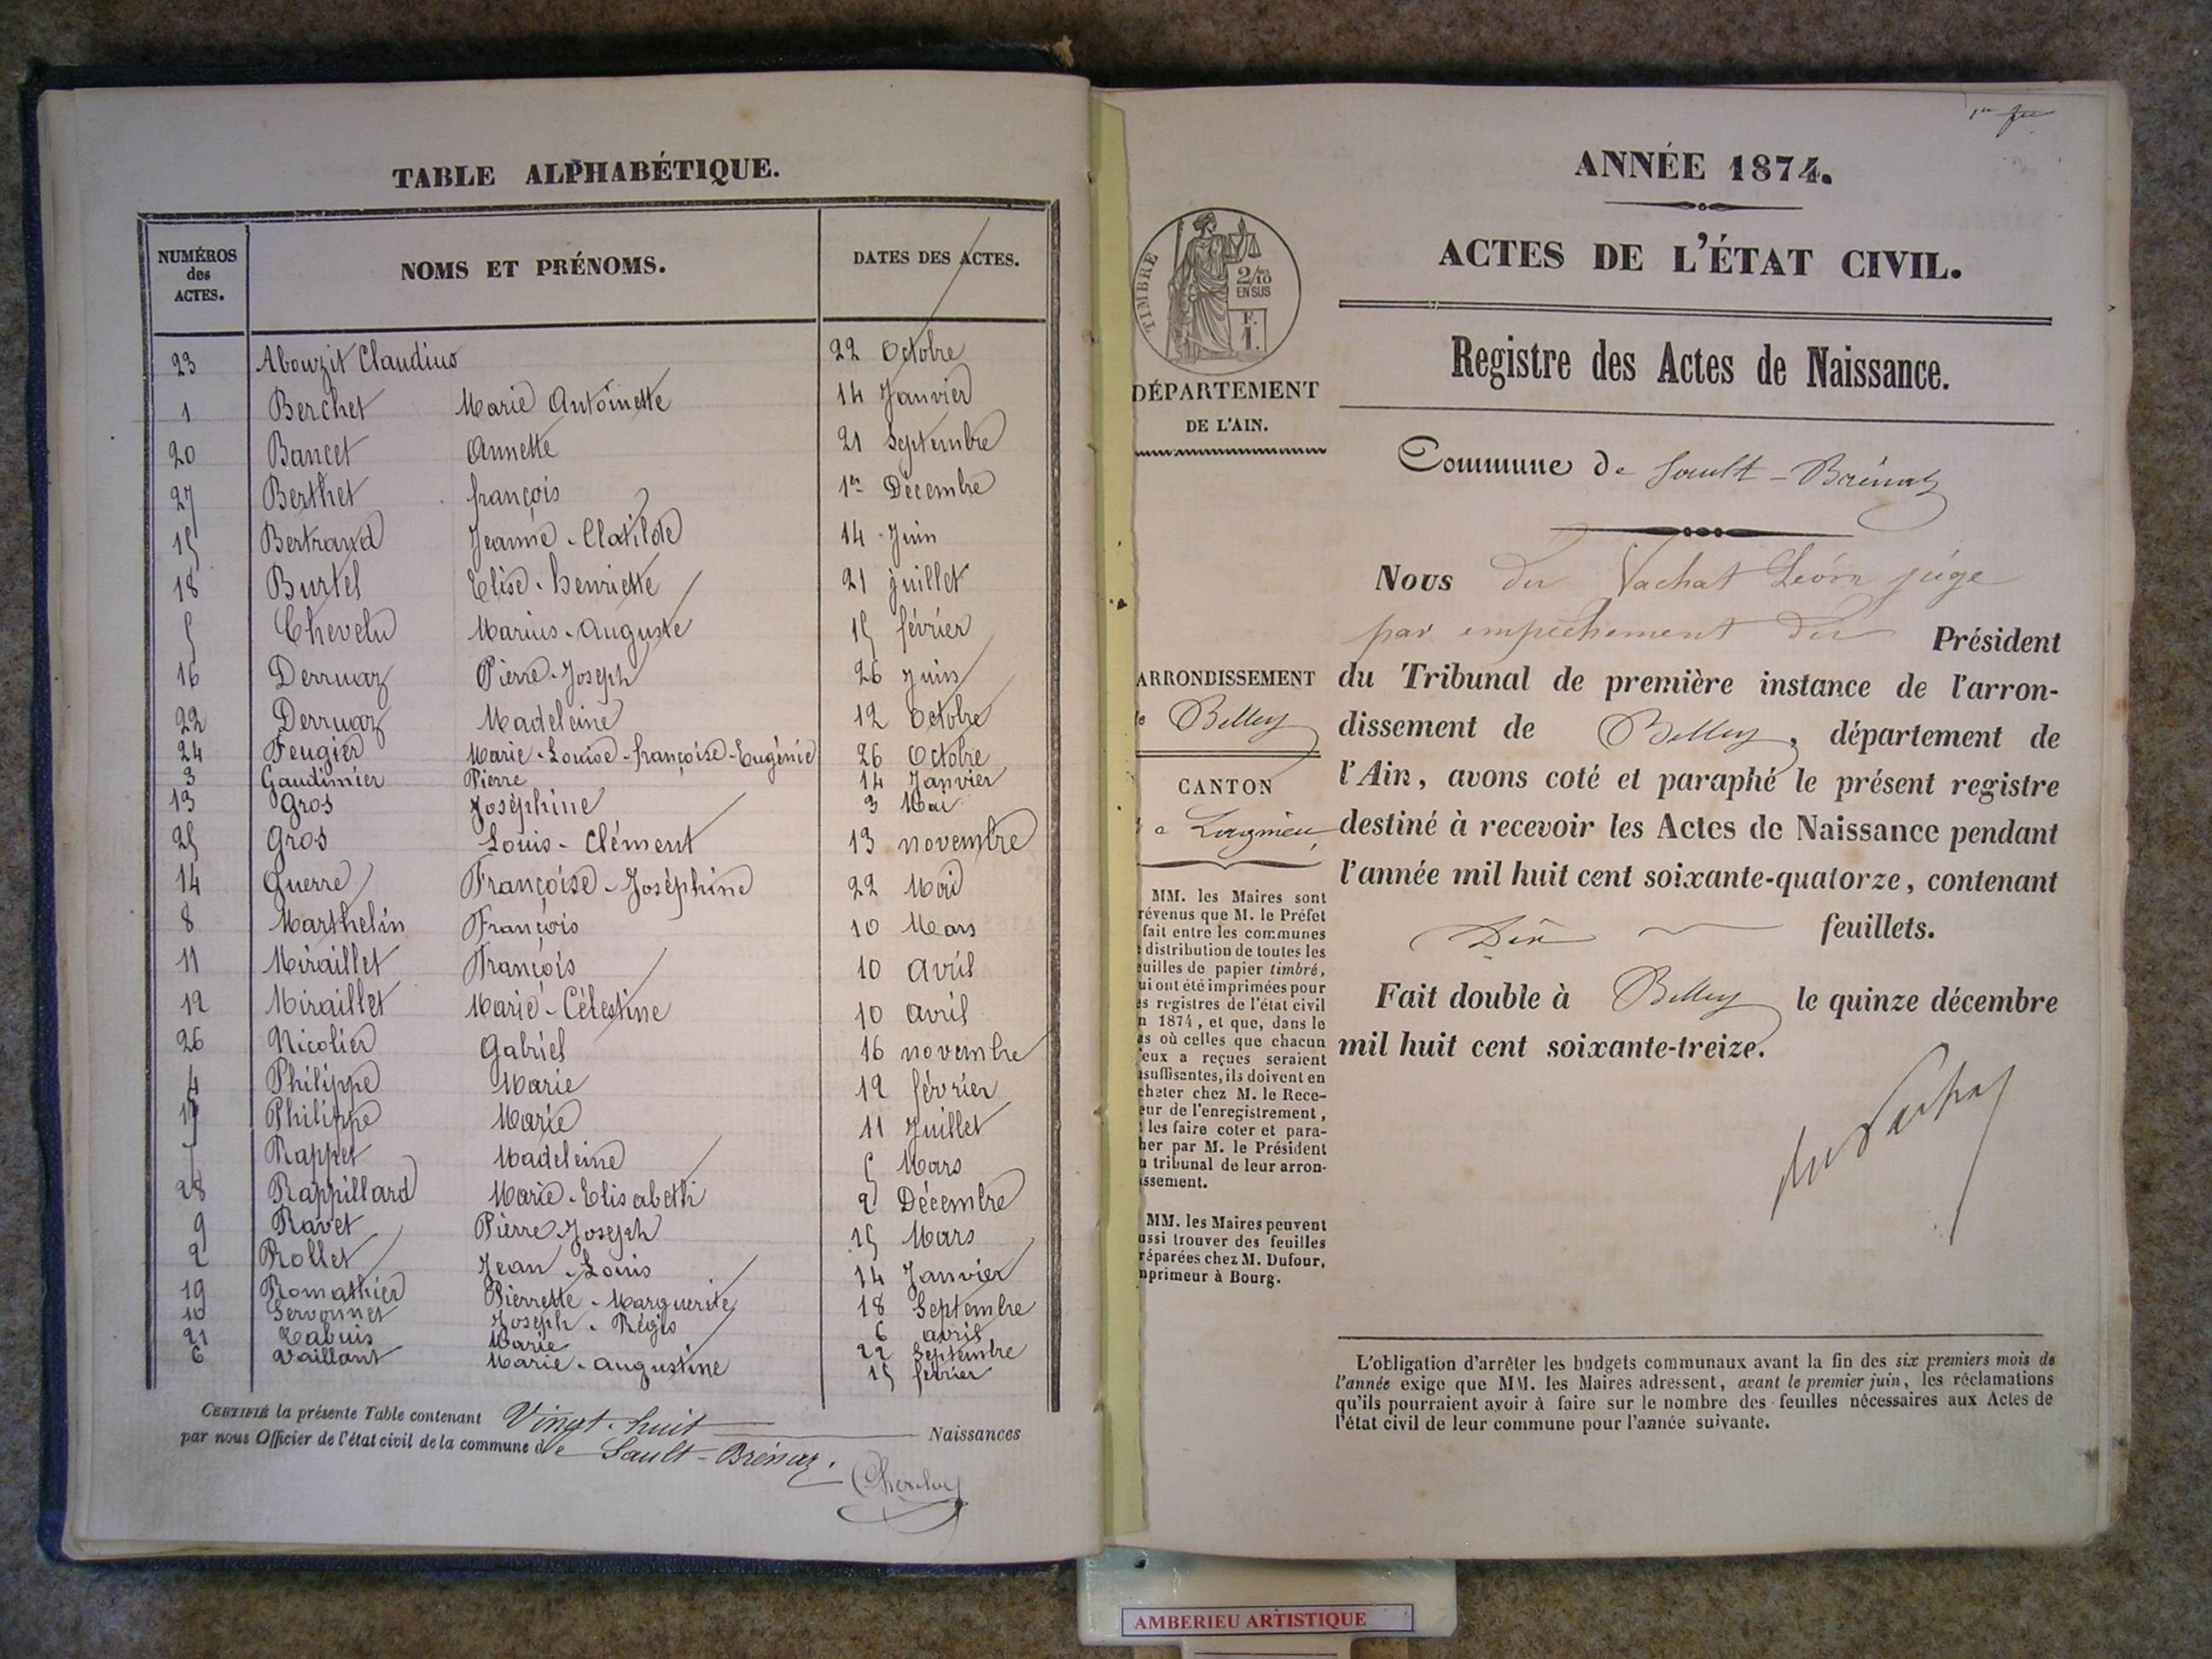 TABLE ALPHABÉTIQUE.
NUMÉROS des ACTES. NOMS ET PRÉNOMS. DATES DES ACTES.
23 Abouzit Claudius 22 Octobre
1 Berchet Marie Antoinette 14 Janvier
20 Bancet Annette 21 Septembre
27 Berthet françois 1er Décembre
15 Bertrand Jeanne-Clotilde 14 Juin
18 Burtel Elise-henriette 21 juillet
5 Chevelu Marius-Auguste 15 février
16 Derruaz Pierre-Joseph 26 Juin
22 Derruaz Madeleine 12 Octobre
24 Feugier Marie-Louise-françoise-Eugénie 26 Octobre
3 Gaudimier Pierre 14 Janvier
13 Gros Joséphine 3 Mai
25 Gros Louis-Clément 13 novembre
14 Guerre Françoise-Joséphine 22 Mai
8 Marthelin François 10 Mars
11 Miraillet François 10 avril
12 Miraillet Marie-Célestine 10 avril
26 Nicolier Gabriel 16 novembre
4 Philippe Marie 12 février
17 Philippe Marie 11 Juillet
7 Rappet Madeleine 5 Mars
28 Rappillard Marie-Elisabeth 2 Décembre
9 Ravet Pierre Joseph 15 Mars
2 Rollet Jean-Louis 14 Janvier
19 Romathier Pierrette-Marguerite 18 Septembre
10 Servonnet Joseph-Régis 6 avril
21 Tabuis Marie 22 Septembre
6 Vaillant Marie-augustine 15 février
CERTIFIÉ la présente Table contenant Vingt-huit Naissances
par nous Officier de l'état civil de la commune de Sault-Brénaz.
ANNÉE 1874.
ACTES DE L'ÉTAT CIVIL.
Registre des Actes de Naissance.
TIMBRE
2/10 EN SUS
F. 1.
DÉPARTEMENT
DE L'AIN.
Commune de Sault-Brénaz
Nous du Vachat Léon juge
par empêchement du Président
du Tribunal de première instance de l'arron-
dissement de Belley, département de
l'Ain, avons coté et paraphé le présent registre
destiné à recevoir les Actes de Naissance pendant
l'année mil huit cent soixante-quatorze, contenant
Dix feuillets.
Fait double à Belley le quinze décembre
mil huit cent soixante-treize.
du Vachat
ARRONDISSEMENT
de Belley
CANTON
de Lagnieu
MM. les Maires sont
révenus que M. le Préfet
fait entre les communes
distribution de toutes les
euilles de papier timbré,
ui ont été imprimées pour
es registres de l'état civil
n 1874, et que, dans le
as où celles que chacun
eux a reçues seraient
suffisantes, ils doivent en
cheter chez M. le Rece-
eur de l'enregistrement,
les faire coter et para-
her par M. le Président
u tribunal de leur arron-
issement.
MM. les Maires peuvent
ussi trouver des feuilles
réparées chez M. Dufour,
mprimeur à Bourg.
L'obligation d'arrêter les budgets communaux avant la fin des six premiers mois de
l'année exige que MM. les Maires adressent, avant le premier juin, les réclamations
qu'ils pourraient avoir à faire sur le nombre des feuilles nécessaires aux Actes de
l'état civil de leur commune pour l'année suivante.
AMBERIEU ARTISTIQUE